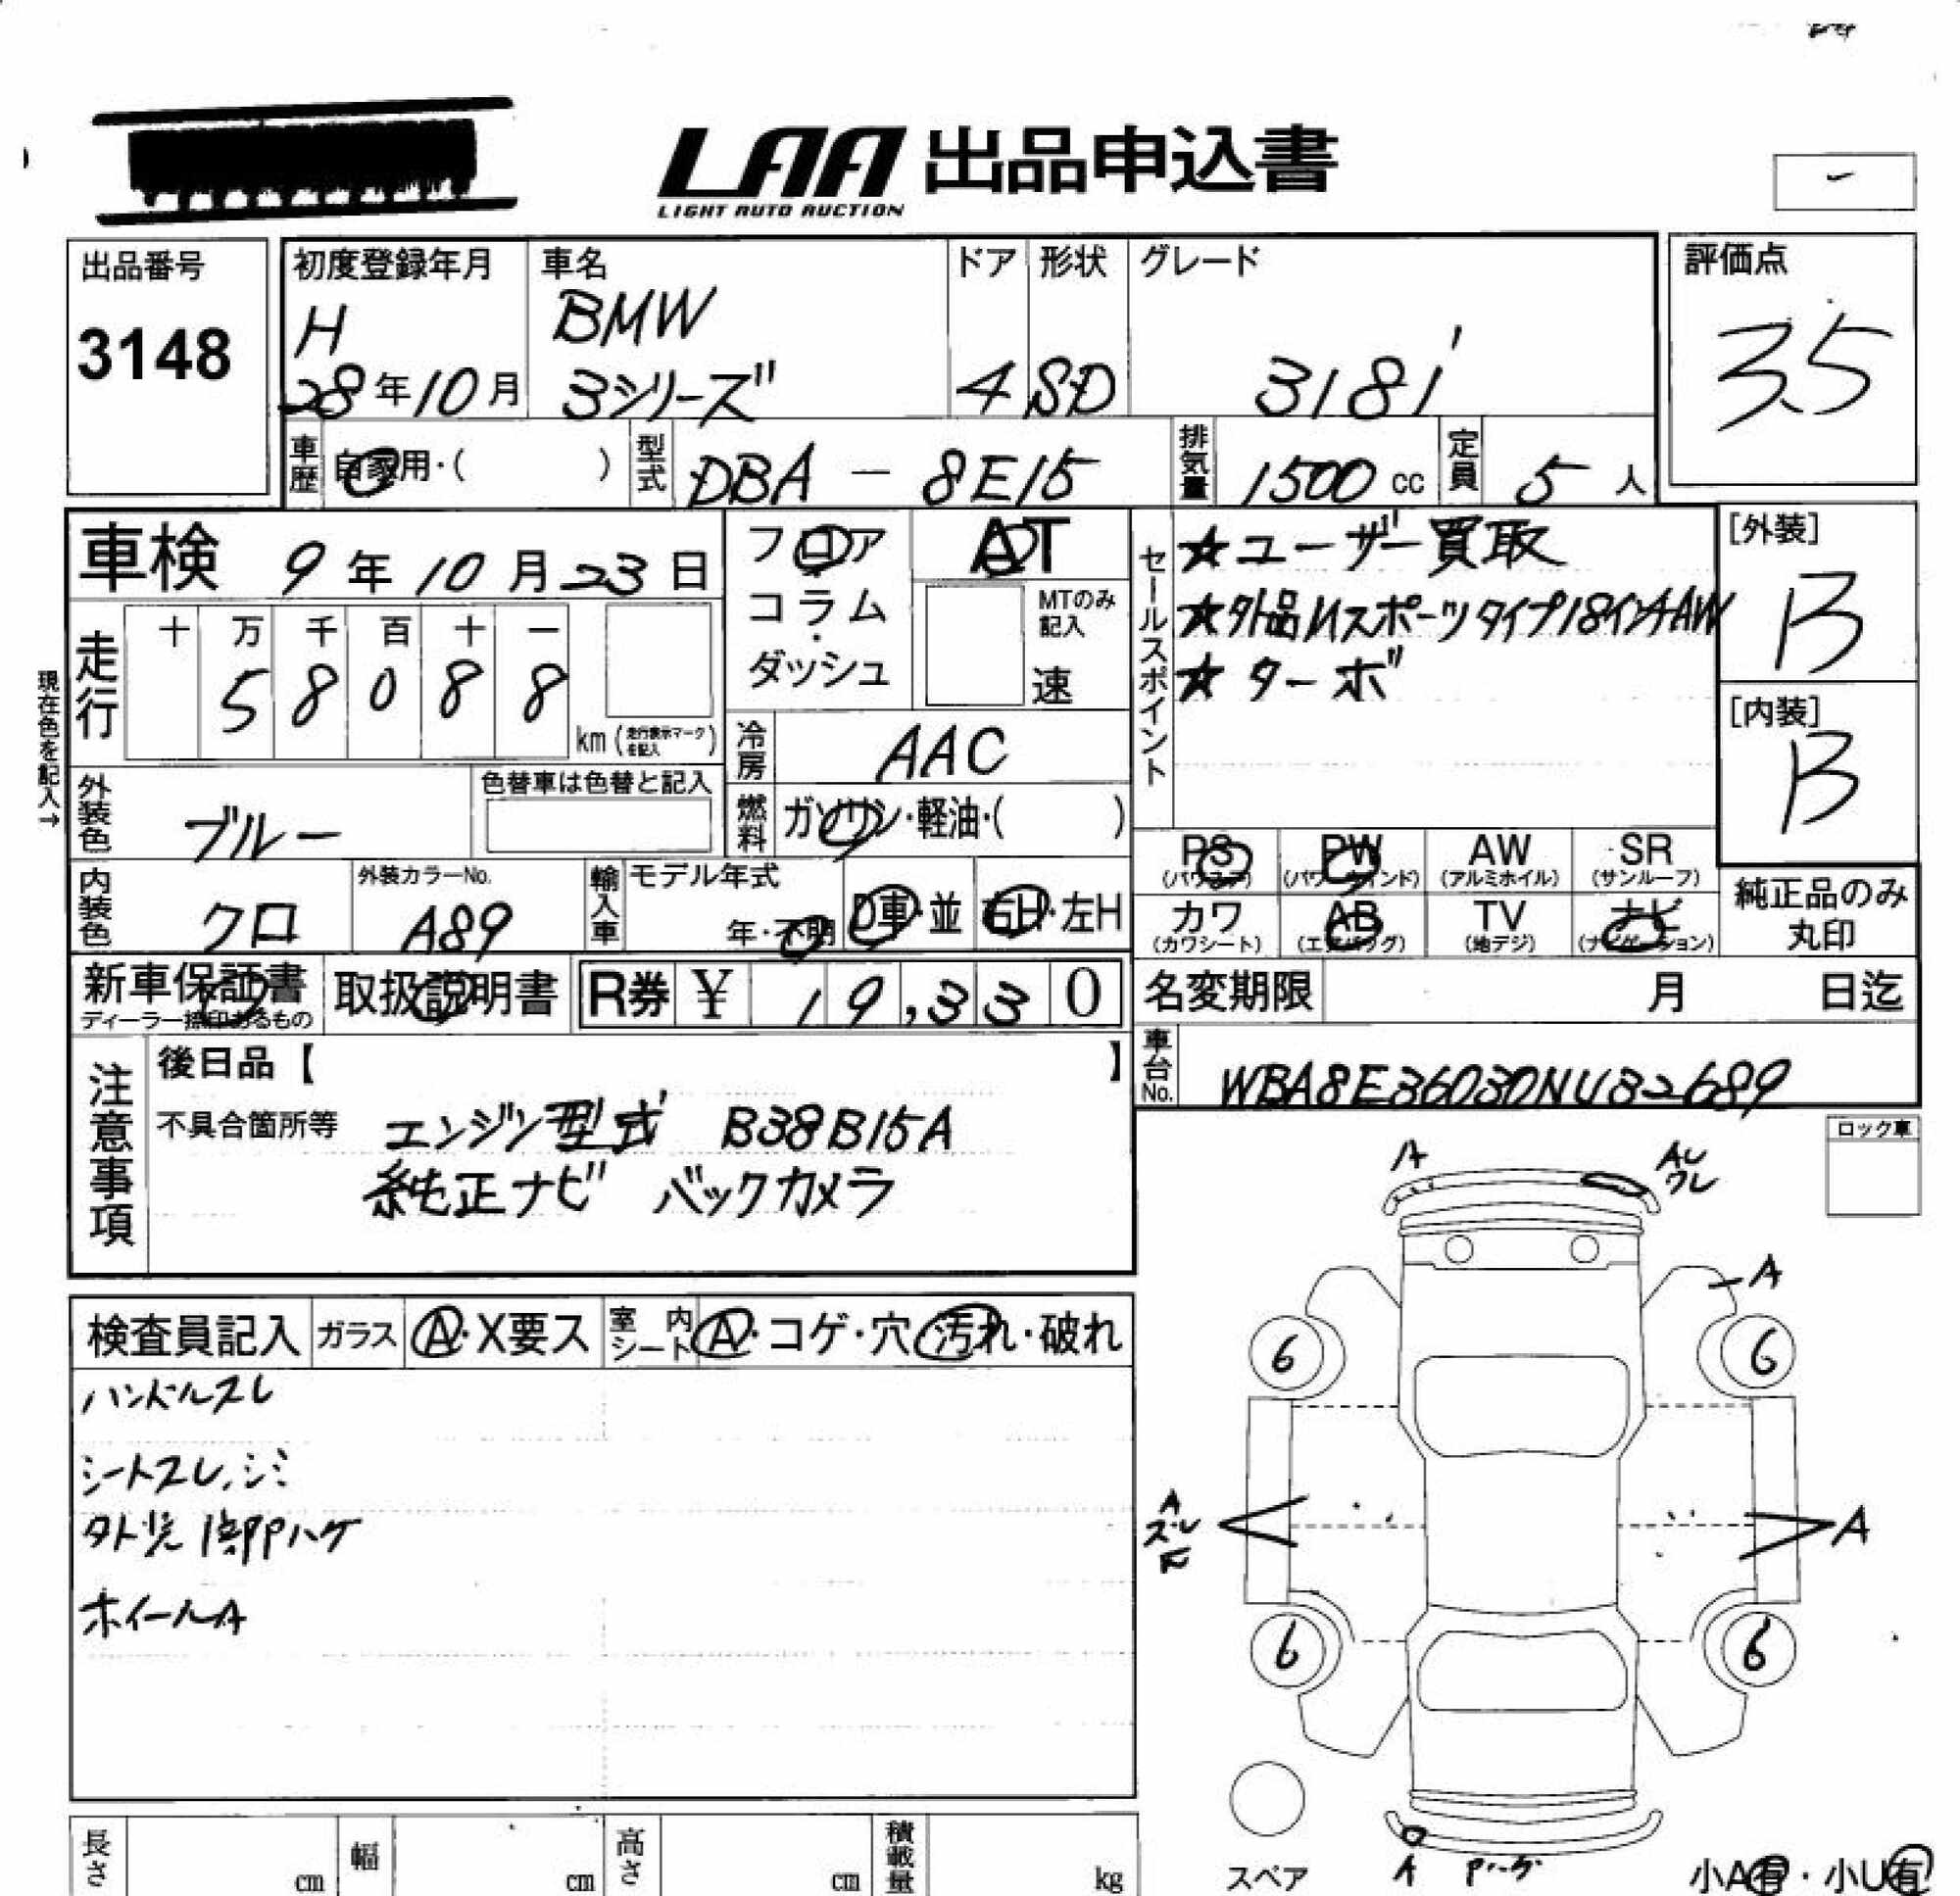 LAA 出品申込書
LIGHT AUTO AUCTION
出品番号
3148
初度登録年月
H
28年10月
車名
BMW
3シリーズ
ドア
4
形状
SD
グレード
318i
評価点
3.5
車歴 自家用・( )
型式 DBA - 8E15
排気量 1500 cc
定員 5 人
車検 9年10月23日
フロア
コラム
・
ダッシュ
AT
MTのみ
記入
速
セールスポイント
★ユーザー買取
★外品Mスポーツタイプ18インチAW
★ターボ
[外装]
B
[内装]
B
現在色を記入→
走行
十 万 千 百 十 一
5 8 0 8 8
km (走行表示マークを記入)
冷房 AAC
外装色 ブルー
色替車は色替と記入
燃料 ガソリン・軽油・( )
PS (パワステ)
PW (パワーウィンド)
AW (アルミホイル)
SR (サンルーフ)
カワ (カワシート)
AB (エアバッグ)
TV (地デジ)
ナビ (ナビゲーション)
純正品のみ
丸印
内装色 クロ
外装カラーNo.
A89
輸入車
モデル年式
年・不明
D車・並
右H・左H
新車保証書
ディーラー捺印あるもの
取扱説明書
R券 ¥ 19,330
名変期限 月 日迄
車台No. WBA8E36030NU82689
注意事項
後日品【 】
不具合箇所等
エンジン型式 B38B15A
純正ナビ バックカメラ
ロック車
検査員記入
ガラス A・X要ス
室内シート A・コゲ・穴・汚れ・破れ
ハンドルスレ
シートスレ、シミ
外装1部Pハゲ
ホイールA
A
A
6
6
A
A
6
6
A
Pハゲ
スペア
小A有・小U有
長さ cm
幅 cm
高さ cm
積載量 kg